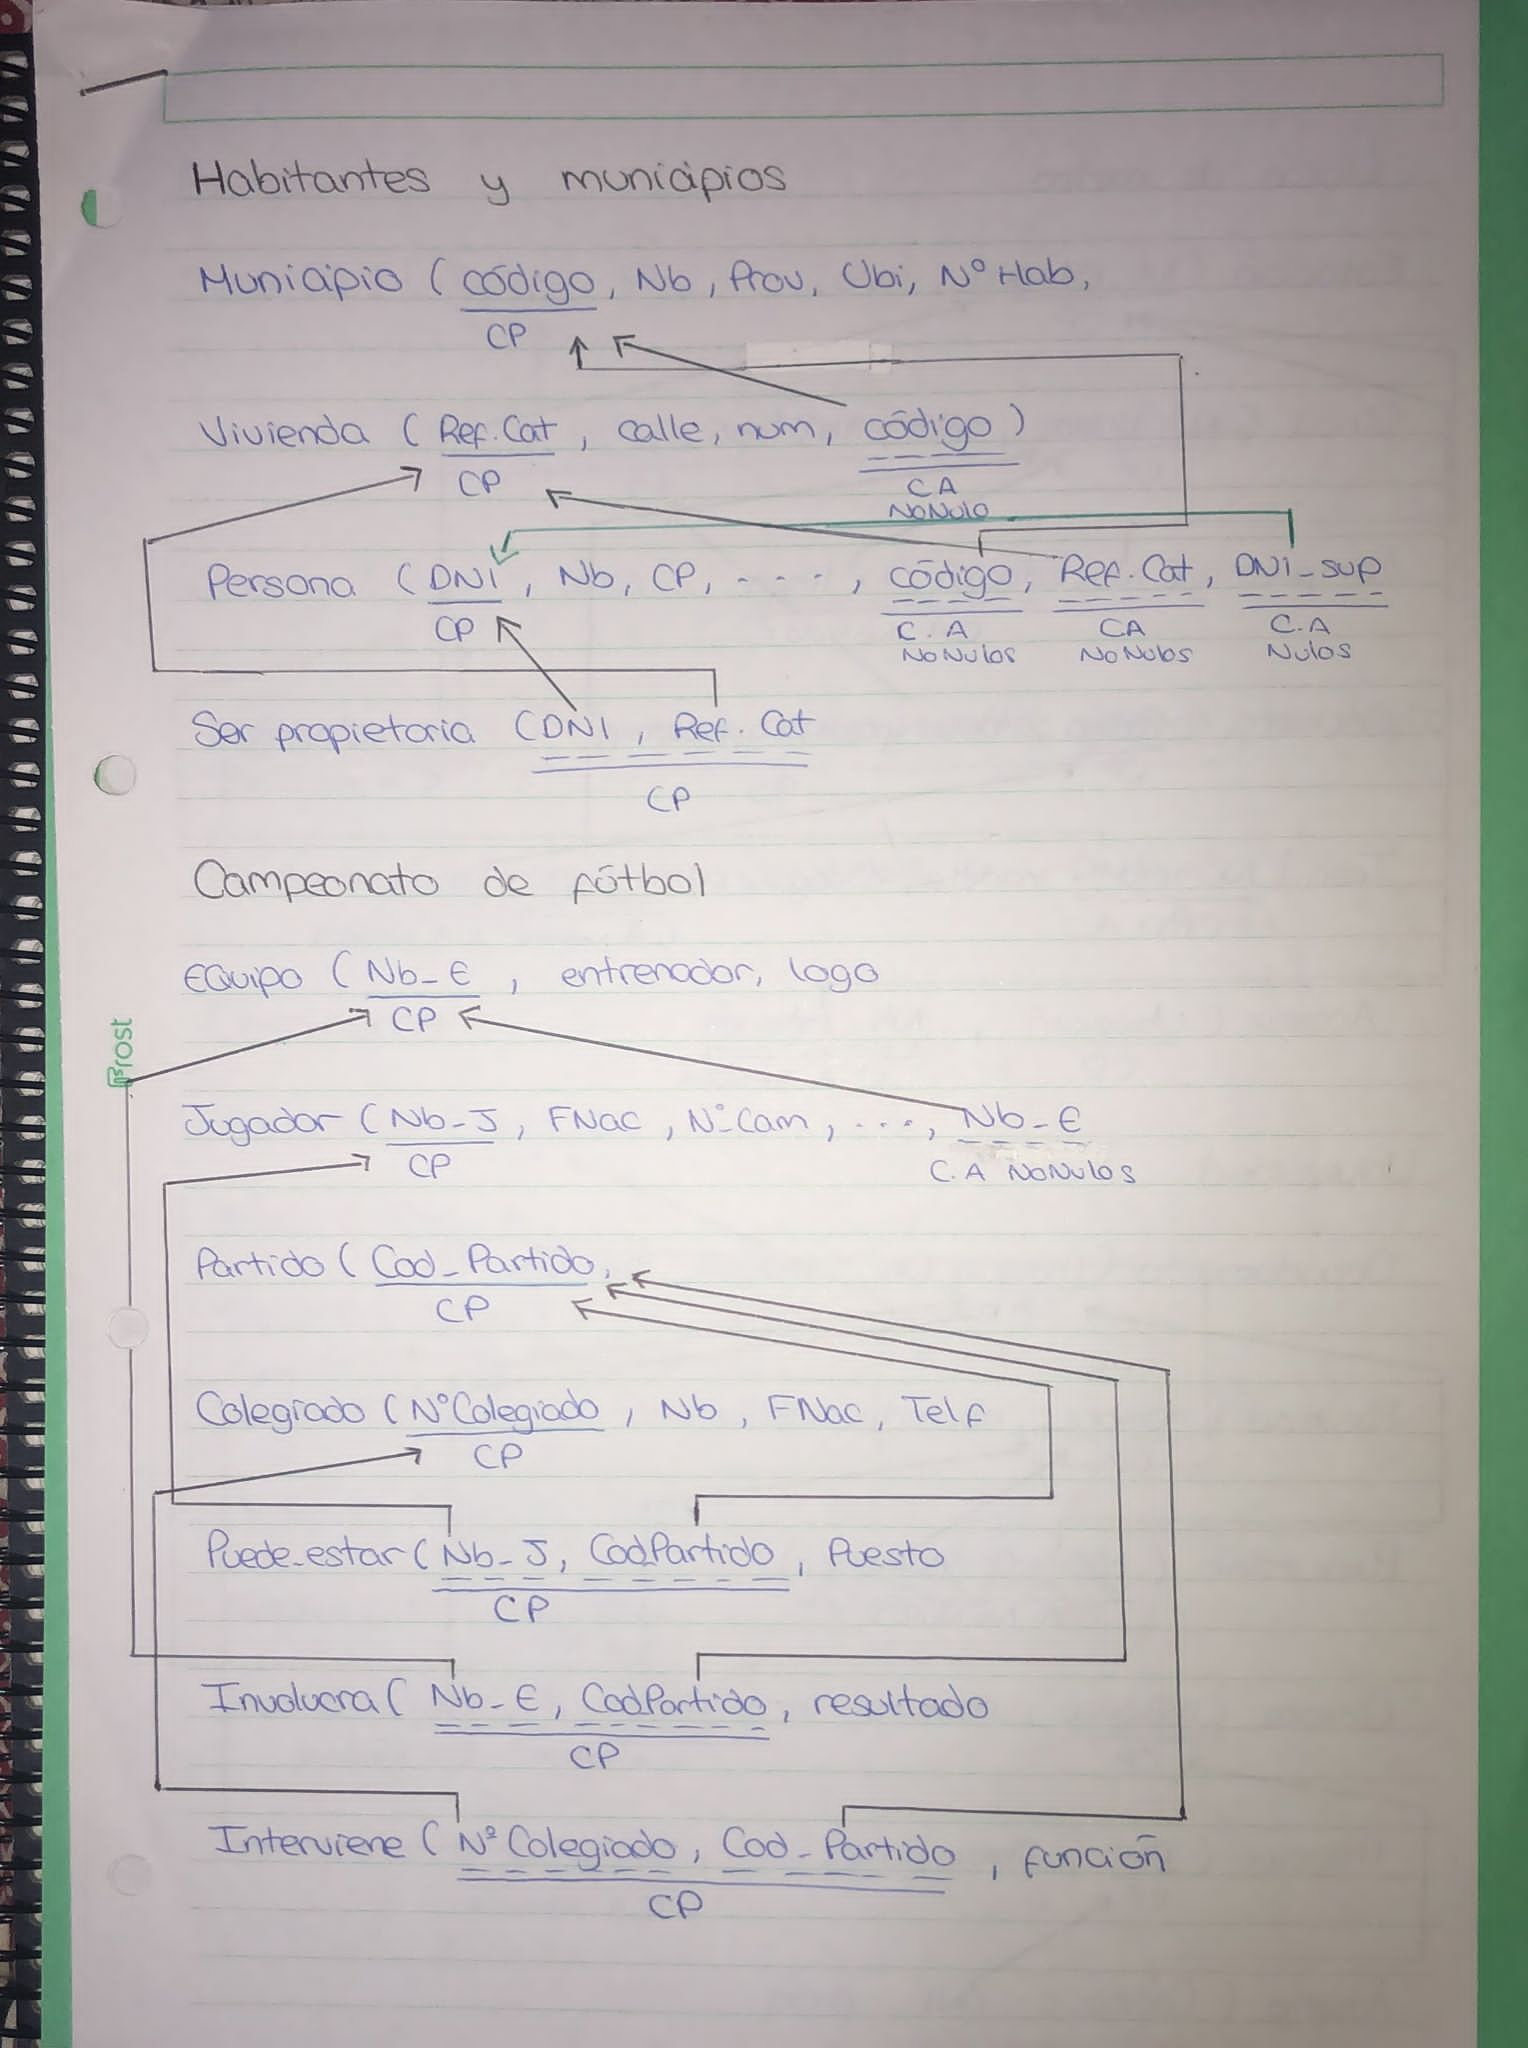 Habitantes y municipios
Municipio ( código, Nb, Prov, Ubi, Nº Hab,
CP
Vivienda ( Ref. Cat, calle, num, código )
CP
CA
NoNulo
Persona ( DNI, Nb, CP, - - - -, código, Ref. Cat, DNI_sup
CP
C. A
CA
C.A
NoNulos
NoNulos
Nulos
Ser propietaria ( DNI, Ref. Cat
CP
Campeonato de fútbol
Equipo ( Nb_E, entrenador, logo
CP
Jugador ( Nb_J, FNac, Nº Cam, ...., Nb_E
CP
C.A NoNulos
Partido ( Cod_Partido,
CP
Colegiado ( Nº Colegiado, Nb, FNac, Telf
CP
Puede_estar ( Nb_J, Cod_Partido, Puesto
CP
Involucra ( Nb_E, Cod_Partido, resultado
CP
Interviene ( Nº Colegiado, Cod_Partido, función
CP
Frost